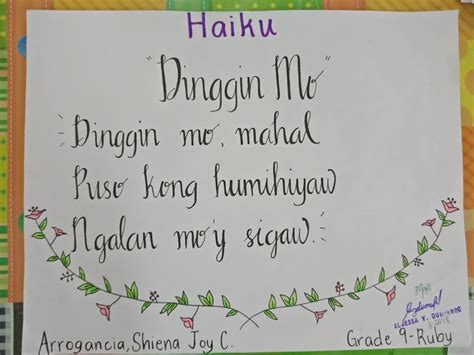 Haiku
"Dinggin Mo"
Dinggin mo, mahal
Puso kong humihiyaw
Ngalan mo'y sigaw.
Arrogancia, Shiena Joy C.
Grade 9-Ruby